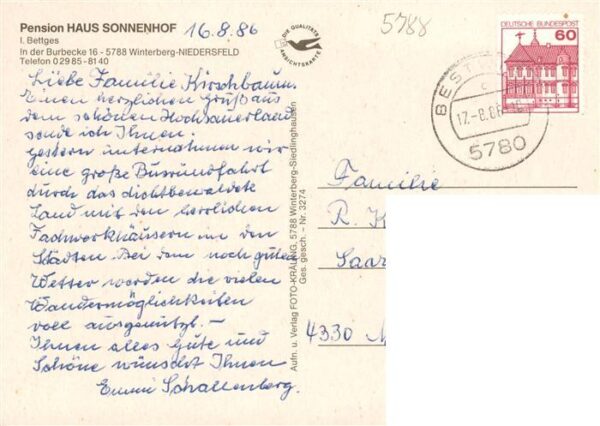 Pension HAUS SONNENHOF
I. Bettges
In der Burbecke 16 - 5788 Winterberg-NIEDERSFELD
Telefon 02985-8140
16.8.86
Liebe Familie Kirschbaum.
Einen herzlichen Gruß aus
dem schönen Hochsauerland
sende ich Ihnen.
Gestern unternahmen wir
eine große Busrundfahrt
durch das dichtbewaldete
Land mit den herrlichen
Fachwerkhäusern in den
Städten. Bei dem noch guten
Wetter werden die vielen
Wandermöglichkeiten
voll ausgenützt. –
Ihnen alles Gute und
Schöne wünscht Ihnen
Emmi Schallenberg.
DIE QUALITÄTS
ANSICHTSKARTE
Aufn. u. Verlag FOTO-KRÄLING, 5788 Winterberg-Siedlinghausen
Ges. gesch. – Nr. 3274
5788
DEUTSCHE BUNDESPOST
60
BEST
c
17.-8.86
5780
Familie
R. K
Saar
4330 M